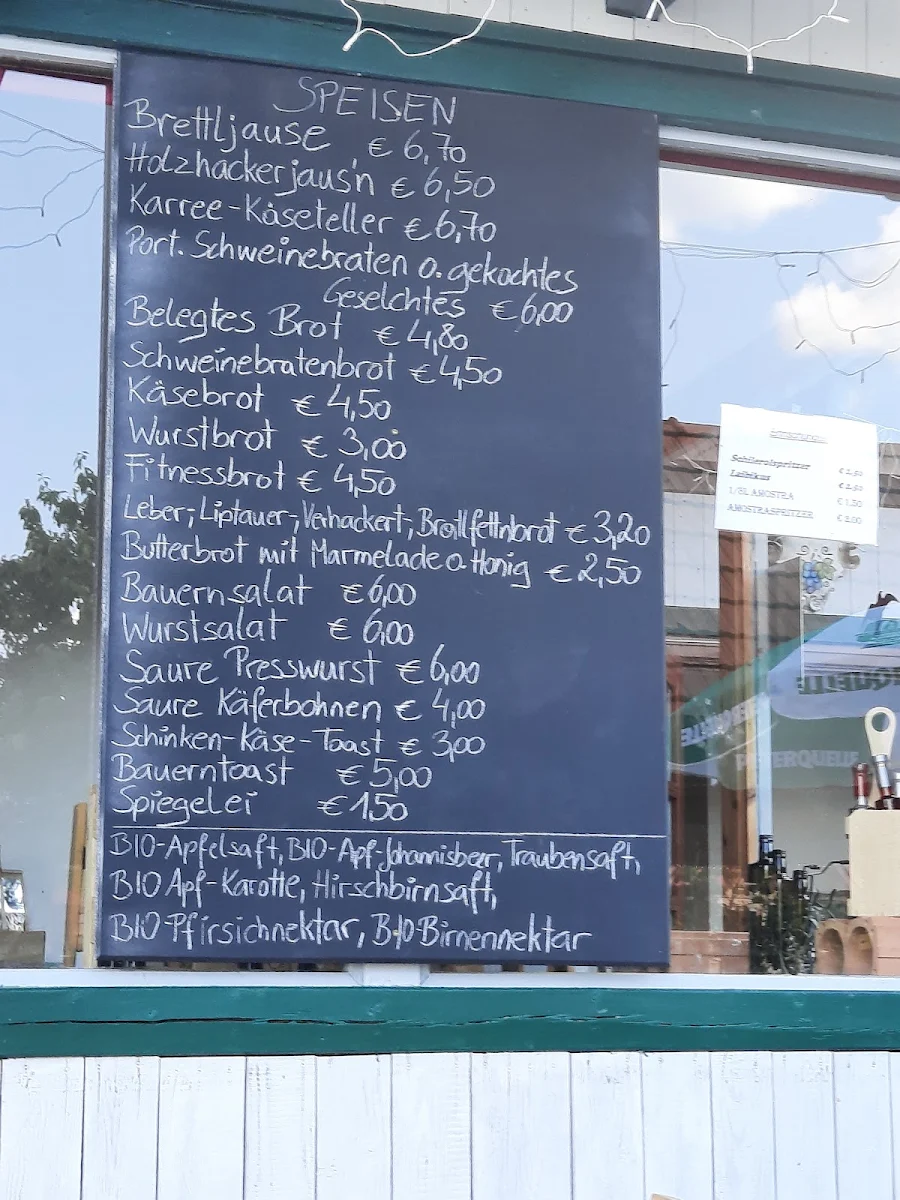 SPEISEN
Brettljause € 6,70
Holzhackerjaus'n € 6,50
Karree-Käseteller € 6,70
Port. Schweinebraten o. gekochtes
Geselchtes € 6,00
Belegtes Brot € 4,80
Schweinebratenbrot € 4,50
Käsebrot € 4,50
Wurstbrot € 3,00
Fitnessbrot € 4,50
Leber-, Liptauer-, Verhackert-, Bratlfettnbrot € 3,20
Butterbrot mit Marmelade o. Honig € 2,50
Bauernsalat € 6,00
Wurstsalat € 6,00
Saure Presswurst € 6,00
Saure Käferbohnen € 4,00
Schinken-Käse-Toast € 3,00
Bauerntoast € 5,00
Spiegelei € 1,50
BIO-Apfelsaft, BIO-Apf-Johannisbeer, Traubensaft,
BIO Apf-Karotte, Hirschbirnsaft,
BIO-Pfirsichnektar, BIO Birnennektar
Schilerolspritzer € 2,50
Leibikus € 2,50
1/8L AMOSTRA € 1,50
AMOSTRASPRITZER € 2,00